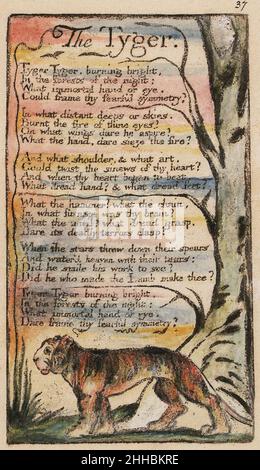 37
The Tyger.
Tyger Tyger, burning bright,
In the forests of the night:
What immortal hand or eye,
Could frame thy fearful symmetry?
In what distant deeps or skies,
Burnt the fire of thine eyes?
On what wings dare he aspire?
What the hand, dare sieze the fire?
And what shoulder, & what art,
Could twist the sinews of thy heart?
And when thy heart began to beat,
What dread hand? & what dread feet?
What the hammer? what the chain,
In what furnace was thy brain?
What the anvil? what dread grasp,
Dare its deadly terrors clasp?
When the stars threw down their spears
And water'd heaven with their tears:
Did he smile his work to see?
Did he who made the Lamb make thee?
Tyger Tyger burning bright,
In the forests of the night:
What immortal hand or eye,
Dare frame thy fearful symmetry?
alamy
Image ID: 2HHBKRE
www.alamy.com